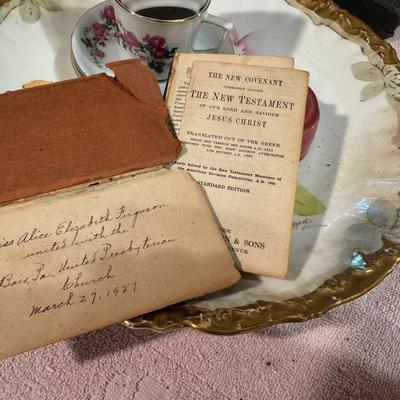 Miss Alice Elizabeth Ferguson
united with the
Bois, Pa, United Presbyterian
Church
March 27, 1927
THE NEW COVENANT
COMMONLY CALLED
THE NEW TESTAMENT
OF OUR LORD AND SAVIOUR
JESUS CHRIST
TRANSLATED OUT OF THE GREEK
BEING THE VERSION SET FORTH A.D. 1611
COMPARED WITH THE MOST ANCIENT AUTHORITIES
AND REVISED A.D. 1881
Newly Edited by the New Testament Members of
the American Revision Committee, A.D. 1900
STANDARD EDITION
& SONS